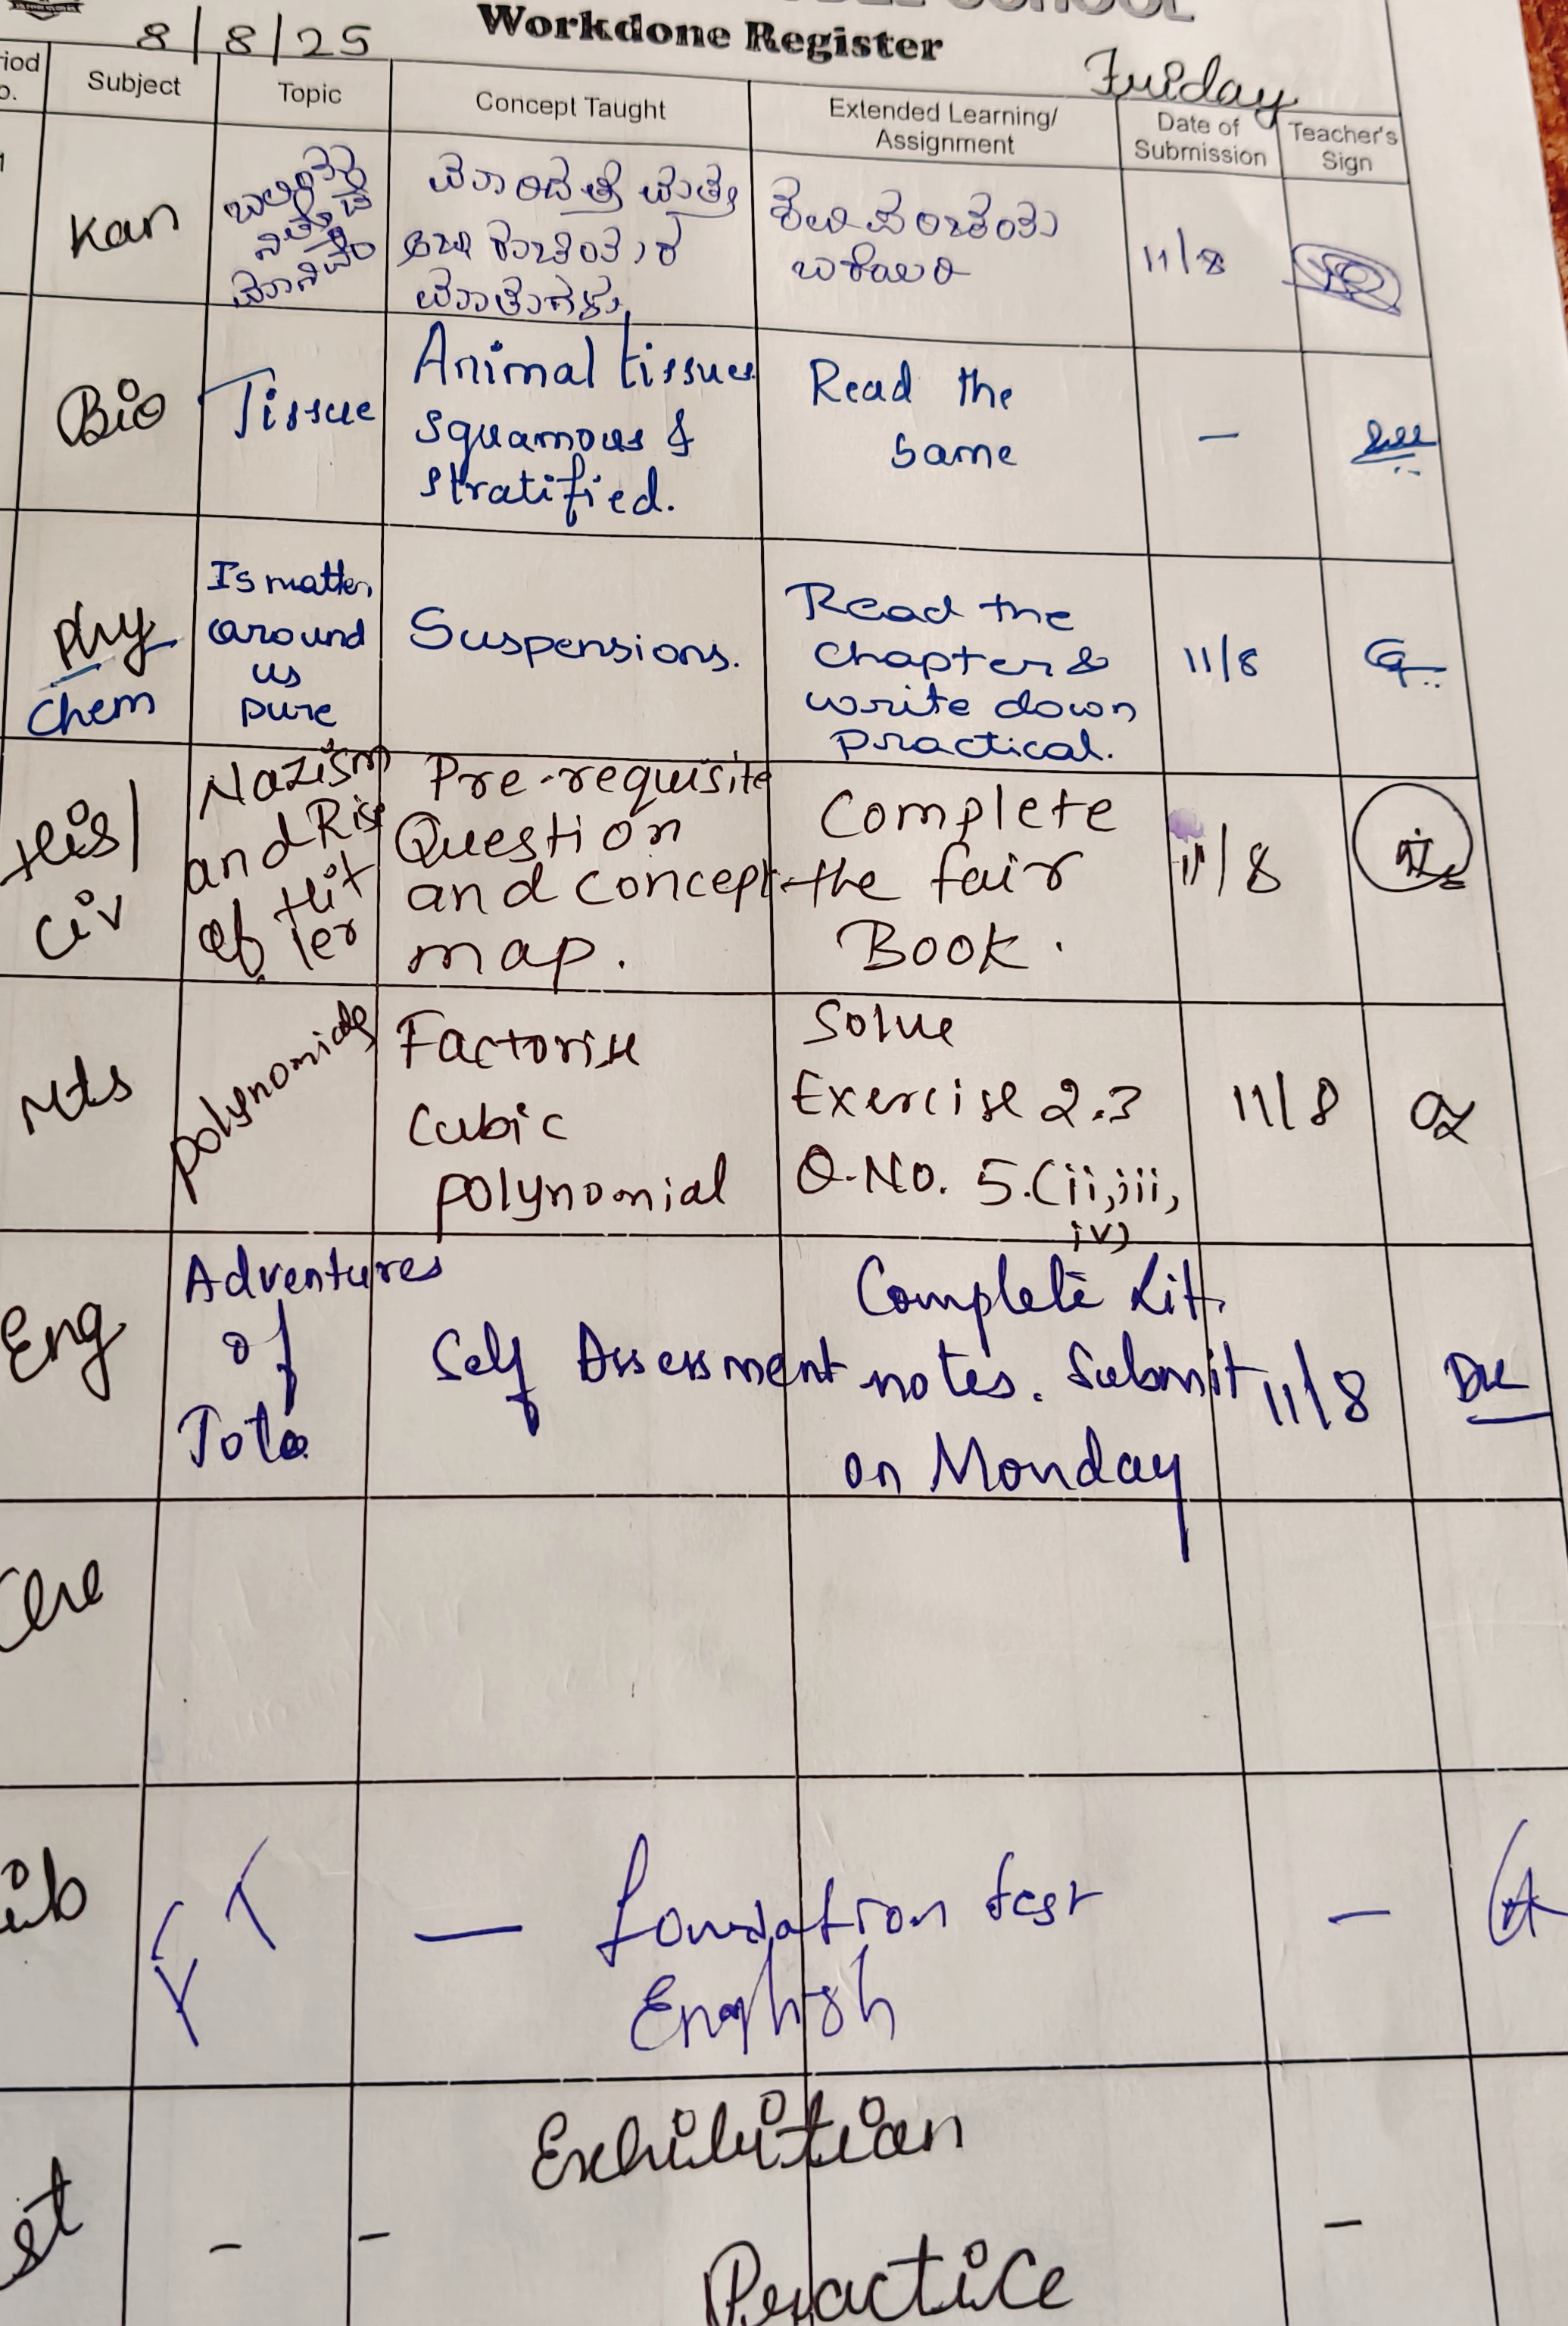 SCHOOL
Workdone Register
8/8/25
Friday
Subject
Topic
Concept Taught
Extended Learning/
Assignment
Date of
Submission
Teacher's
Sign
Kan
11/8
Bio
Tissue
Animal tissues
Squamous &
stratified.
Read the
same
-
Phy
Chem
Is matter
around
us
pure
Suspensions.
Read the
chapter &
write down
practical.
11/8
His/
Civ
Nazism
and Rise
of Hit
ler
Pre-requisite
Question
and concept
map.
Complete
the fair
Book.
11/8
Mts
polynomials
Factorise
Cubic
polynomial
Solve
Exercise 2.3
Q.No. 5.(ii,iii,
iv)
11/8
Eng
Adventures
of
Toto
Self Assessment
Complete Lit.
notes. Submit
on Monday
11/8
— foundation test —
English
- - Exhibition -
Practice